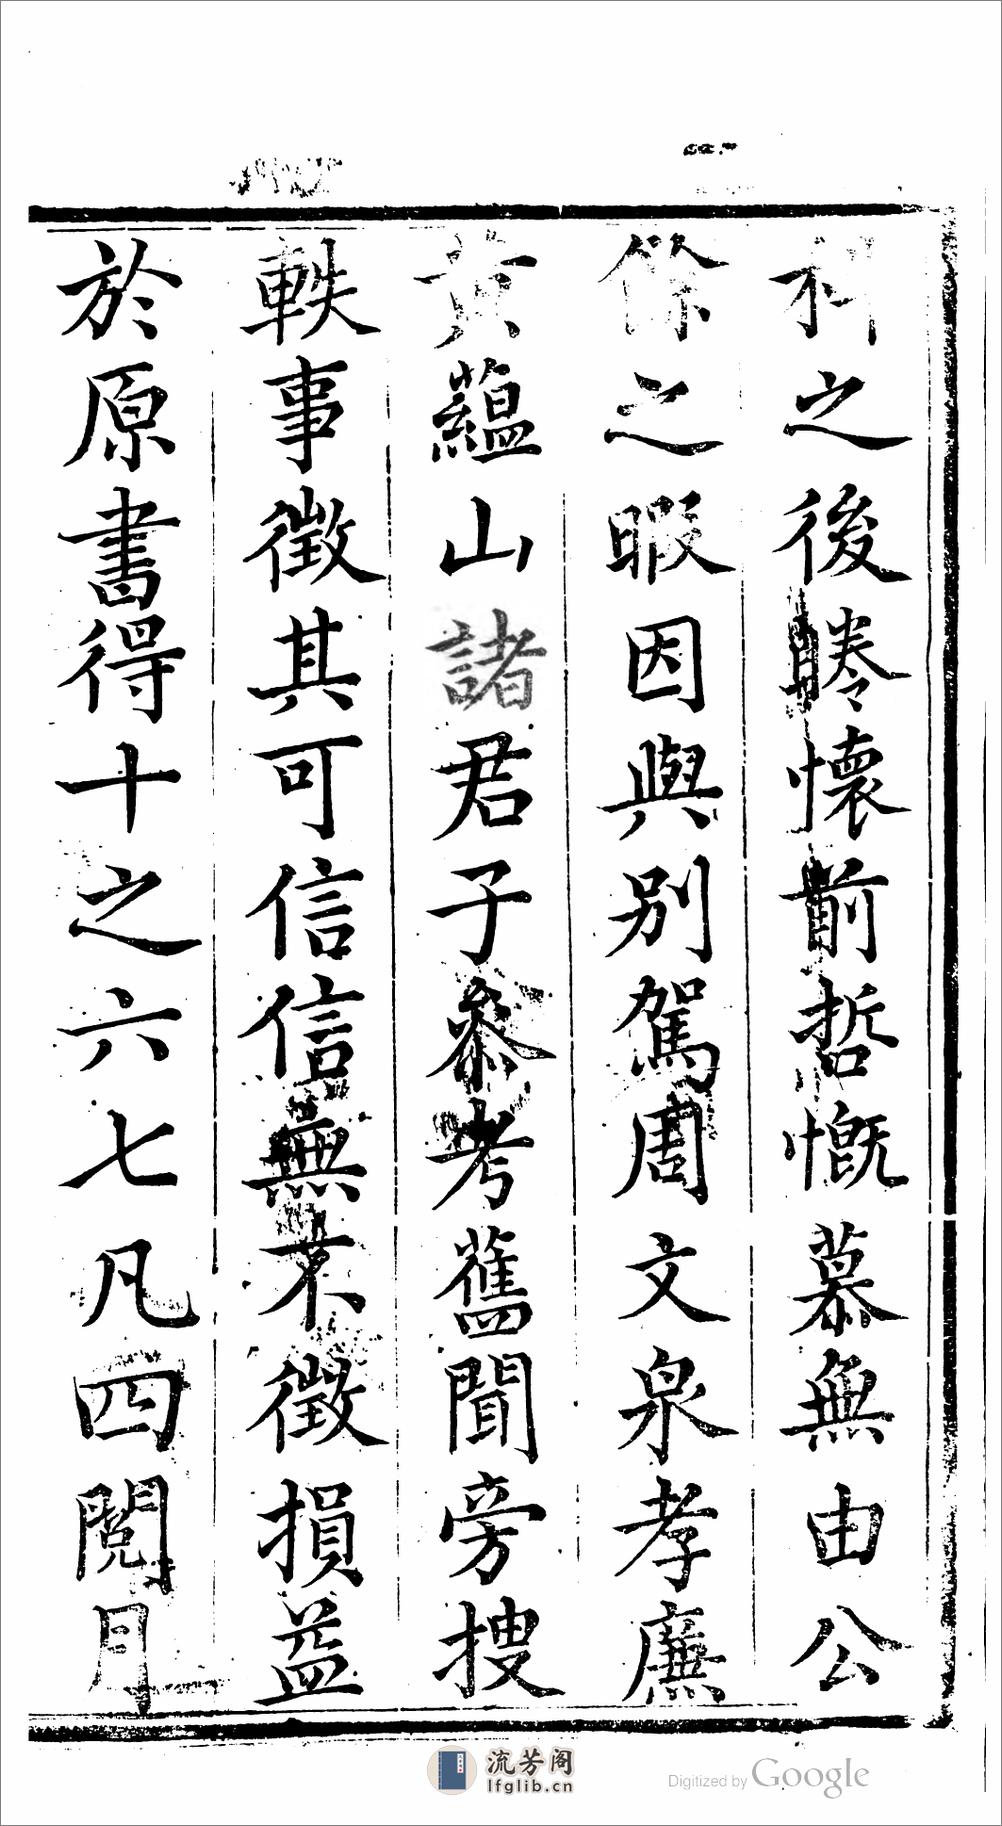 科之後睠懷前哲慨慕無由公
餘之暇因與別駕周文泉孝廉
黃蘊山諸君子叅考舊聞旁搜
軼事徵其可信信無不徵損益
於原書得十之六七凡四閱月
流芳阁
lfglib.cn
Digitized by Google